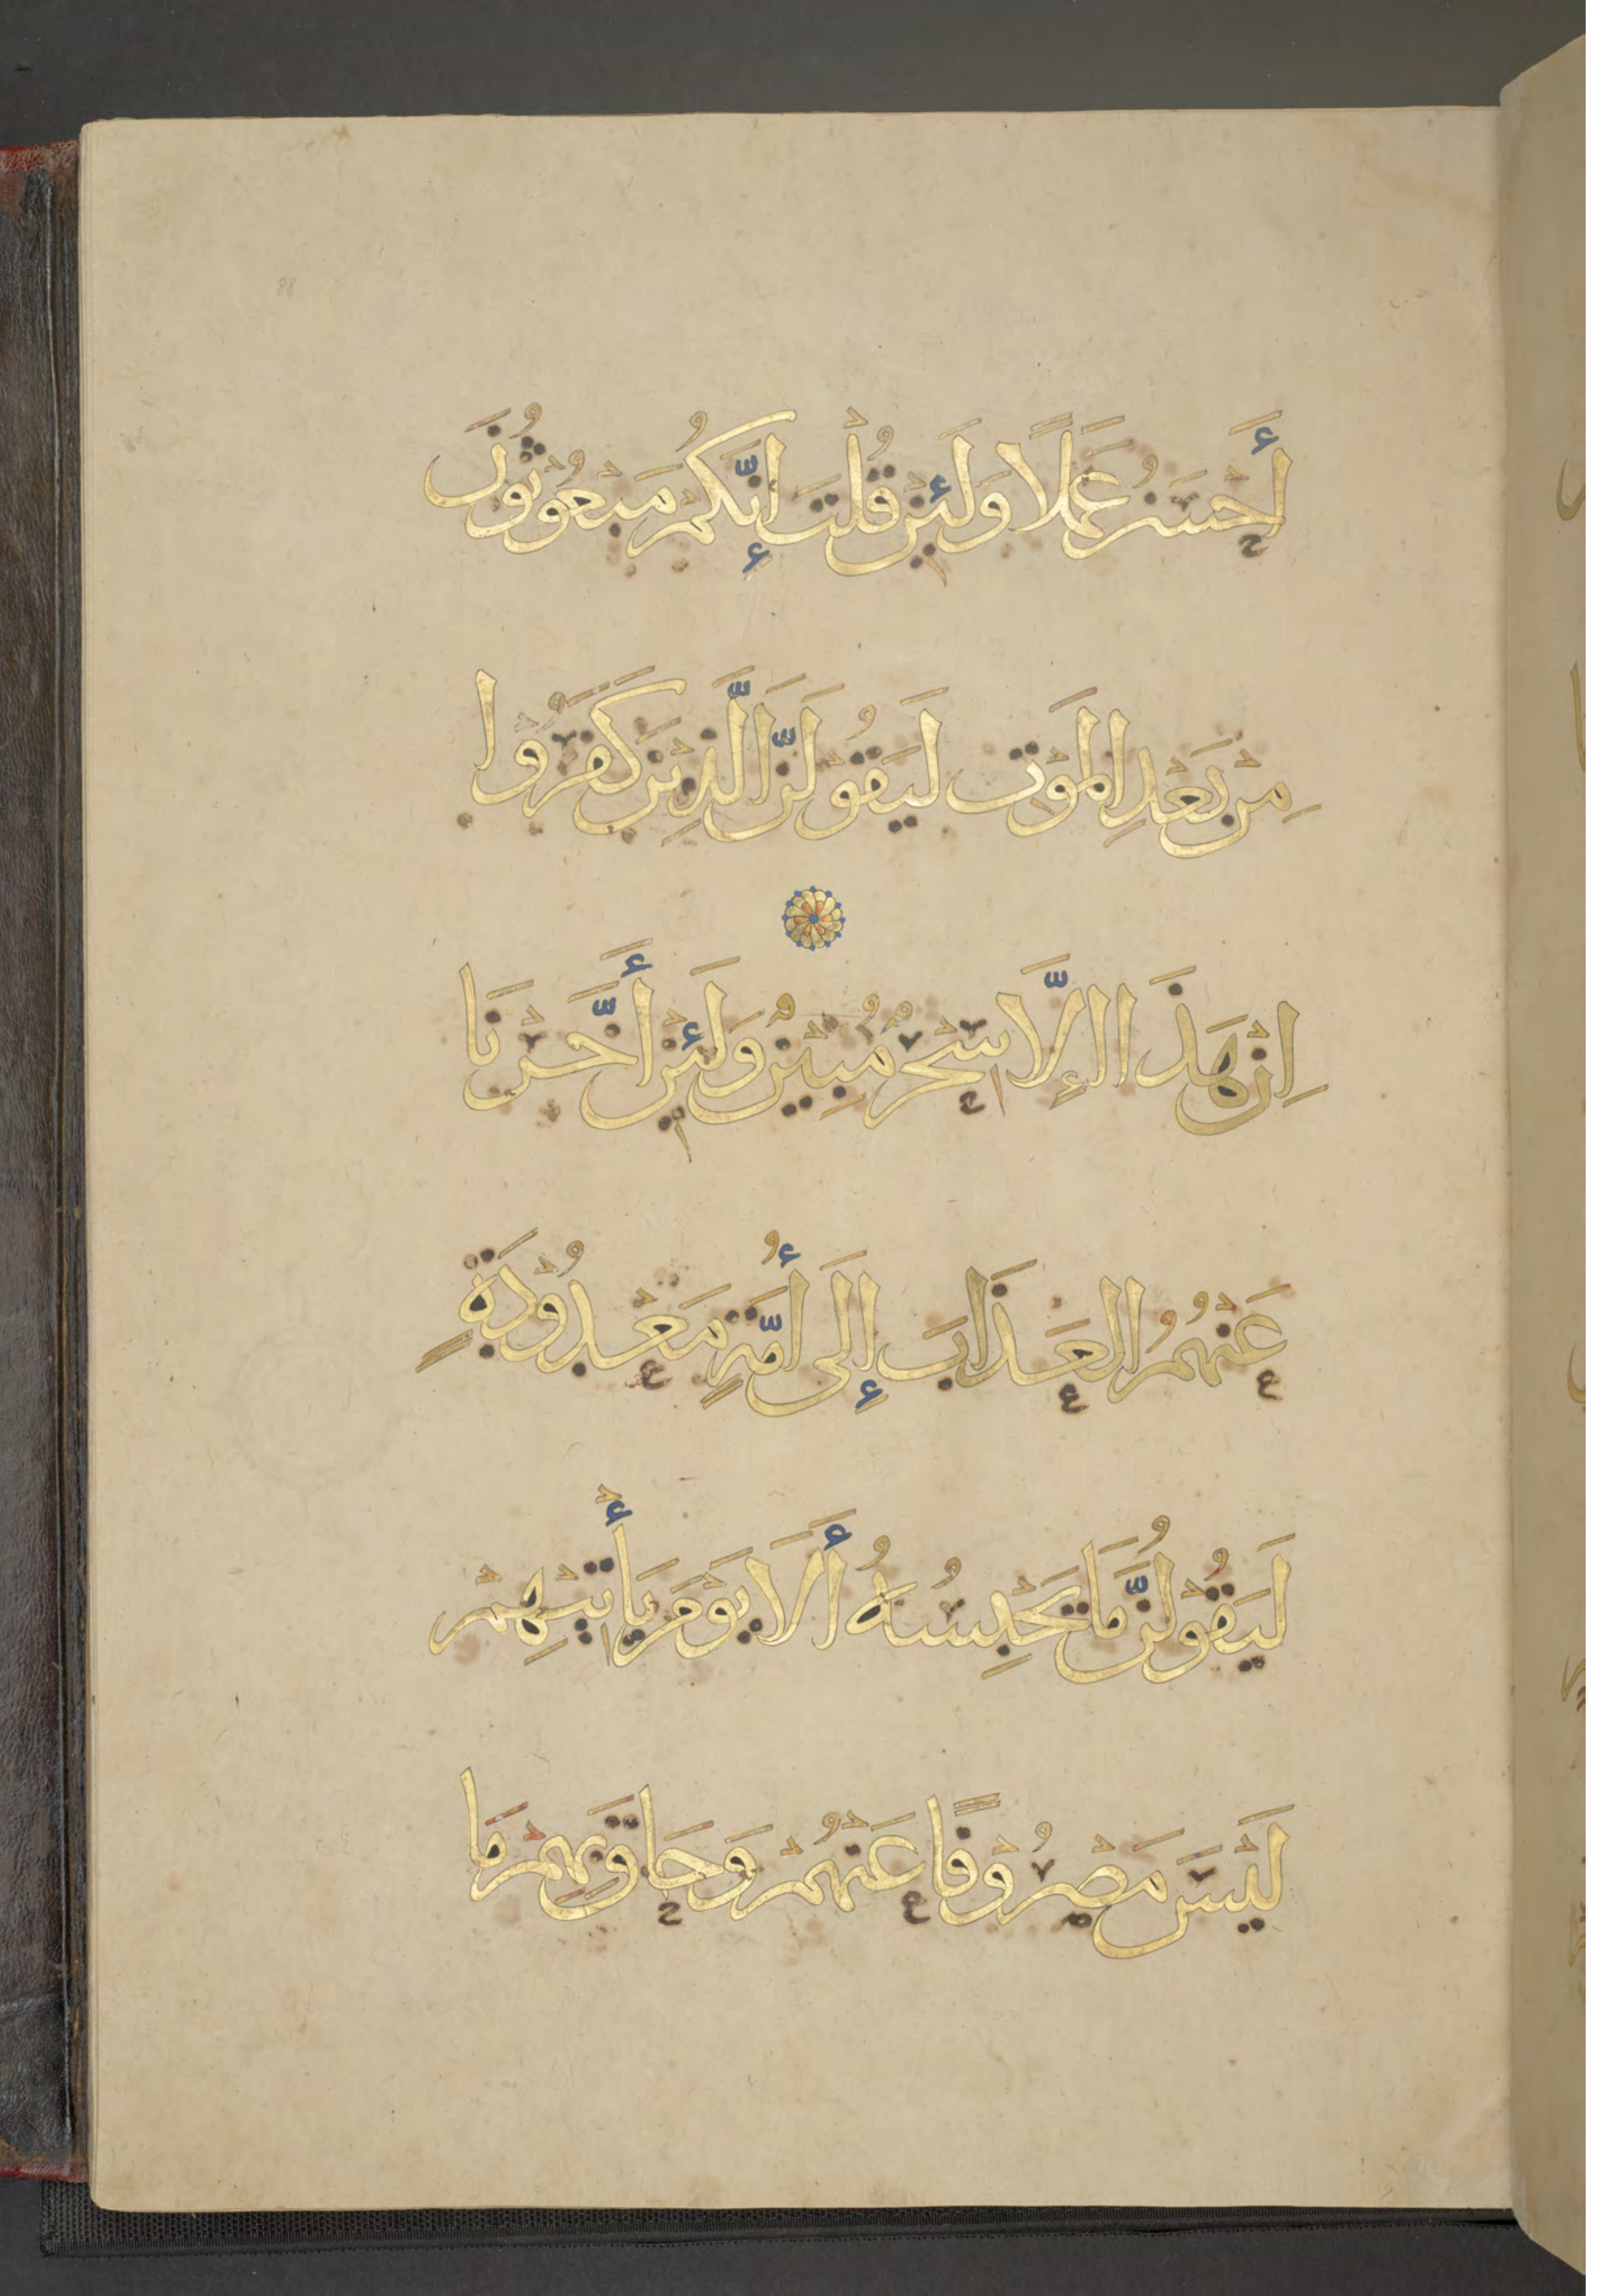 أَحْسَنُ عَمَلًا وَلَئِنْ قُلْتَ إِنَّكُمْ مَبْعُوثُونَ
مِنْ بَعْدِ الْمَوْتِ لَيَقُوْلَنَّ الَّذِيْنَ كَفَرُوْا
اِنْ هَذَا اإِلَّا سِحْرٌ مُبِيْنٌ وَلَئِنْ أَخَّرْنَا
عَنْهُمُ الْعَذَابَ إِلَى أُمَّةٍ مَعْدُوْدَةٍ
لَيَقُوْلُنَّ مَا يَحْبِسُهُ أَلَا يَوْمَ يَأْتِيْهِمْ
لَيْسَ مَصْرُوْفًا عَنْهُمْ وَحَاقَ بِهِمْ مَا
88